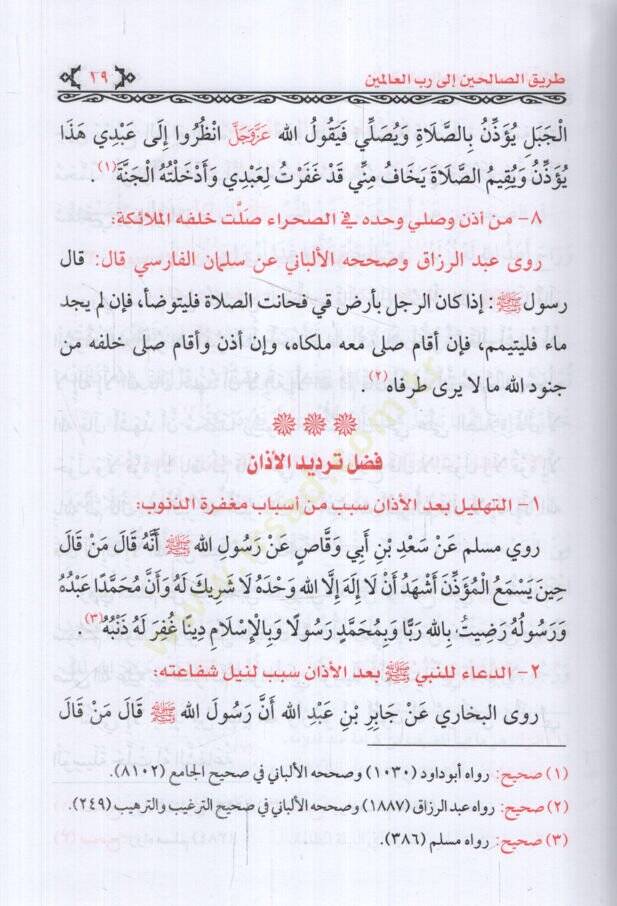 طريق الصالحين إلى رب العالمين
٢٩
الْجَبَلِ يُؤَذِّنُ بِالصَّلَاةِ وَيُصَلِّي فَيَقُولُ الله عَزَّوَجَلَّ انْظُرُوا إِلَى عَبْدِي هَذَا
يُؤَذِّنُ وَيُقِيمُ الصَّلَاةَ يَخَافُ مِنِّي قَدْ غَفَرْتُ لِعَبْدِي وَأَدْخَلْتُهُ الْجَنَّةَ (١).
٨- من أذن وصلي وحده في الصحراء صلَّت خلفه الملائكة:
روى عبد الرزاق وصححه الألباني عن سلمان الفارسي قال: قال
رسول ﷺ: إذا كان الرجل بأرض قي فحانت الصلاة فليتوضأ، فإن لم يجد
ماء فليتيمم، فإن أقام صلى معه ملكاه، وإن أذن وأقام صلى خلفه من
جنود الله ما لا يرى طرفاه (٢).
فضل ترديد الأذان
١- التهليل بعد الأذان سبب من أسباب مغفرة الذنوب:
روي مسلم عَنْ سَعْدِ بْنِ أَبِي وَقَّاصٍ عَنْ رَسُولِ الله ﷺ أَنَّهُ قَالَ مَنْ قَالَ
حِينَ يَسْمَعُ الْمُؤَذِّنَ أَشْهَدُ أَنْ لَا إِلَهَ إِلَّا الله وَحْدَهُ لَا شَرِيكَ لَهُ وَأَنَّ مُحَمَّدًا عَبْدُهُ
وَرَسُولُهُ رَضِيتُ بِالله رَبًّا وَبِمُحَمَّدٍ رَسُولًا وَبِالْإِسْلَامِ دِينًا غُفِرَ لَهُ ذَنْبُهُ (٣).
٢- الدعاء للنبي ﷺ بعد الأذان سبب لنيل شفاعته:
روى البخاري عَنْ جَابِرِ بْنِ عَبْدِ الله أَنَّ رَسُولَ الله ﷺ قَالَ مَنْ قَالَ
(١) صحيح: رواه أبو داود (١٠٣٠) وصححه الألباني في صحيح الجامع (٨١٠٢).
(٢) صحيح: رواه عبد الرزاق (١٨٨٧) وصححه الألباني في صحيح الترغيب والترهيب (٢٤٩).
(٣) صحيح: رواه مسلم (٣٨٦).